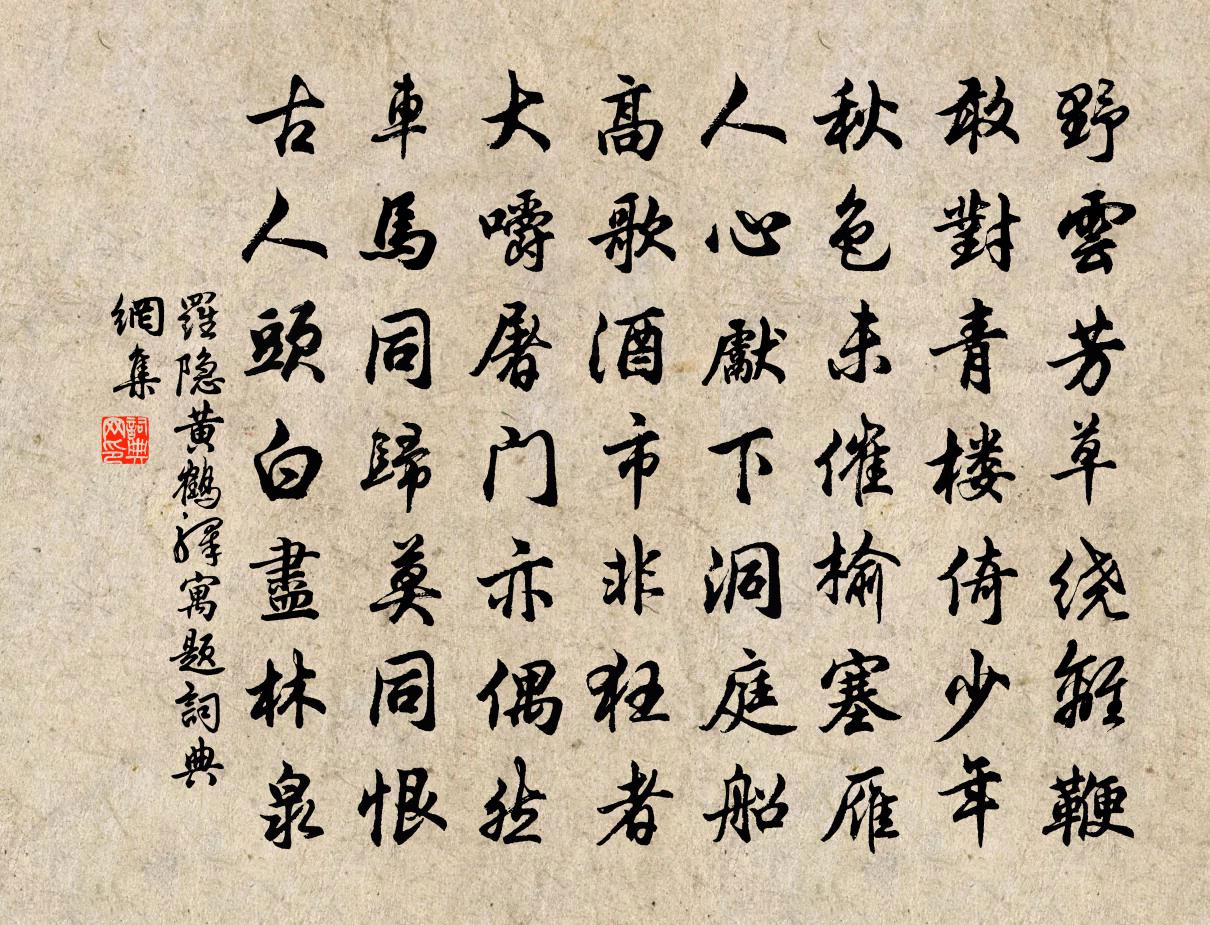 野雲芳草绕離鞭
敢對青楼倚少年
秋色未催榆塞雁
人心獻下洞庭船
高歌酒市非狂者
大嚼屠门亦偶然
車馬同歸莫同恨
古人頭白盡林泉
羅隐黄鶴驛寓題詞典
網集
詞典
网印